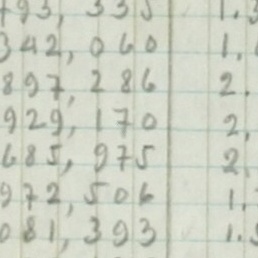 493, 335 1.3
342, 060 1.
897, 286 2.
929, 170 2,
685, 975 2
972, 506 1.
081, 393 1.3